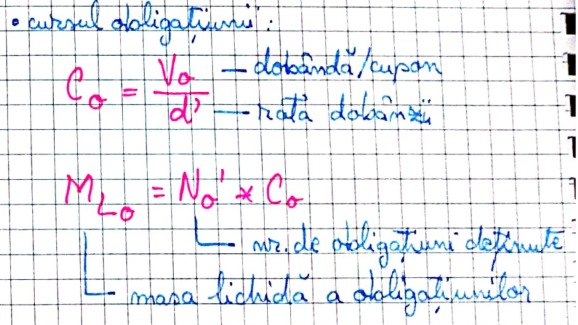 • cursul obligațiunii:
C₀ = V₀/d' — dobândă/cupon
— rată dobânzii
M_L₀ = N₀' * C₀
nr. de obligațiuni deținute
masa lichidă a obligațiunilor